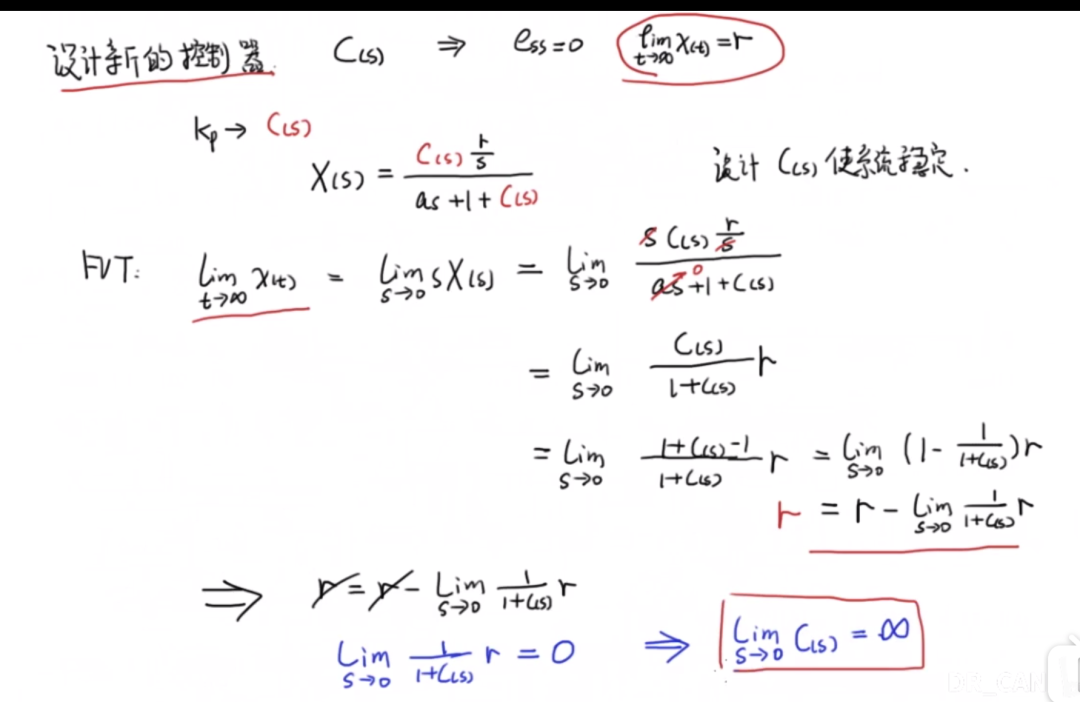 设计新的控制器. C(s) ⇒ e_ss=0 lim_{t→∞} x(t)=r
k_p → C(s)
X(s) = \frac{C(s) \frac{r}{s}}{as+1+C(s)} 设计 C(s) 使系统稳定.
FVT: Lim_{t→∞} x(t) = Lim_{s→0} sX(s) = Lim_{s→0} \frac{s C(s) \frac{r}{s}}{as+1+C(s)} 0
= Lim_{s→0} \frac{C(s)}{1+C(s)} r
= Lim_{s→0} \frac{1+C(s)-1}{1+C(s)} r = Lim_{s→0} (1-\frac{1}{1+C(s)})r
r = r - Lim_{s→0} \frac{1}{1+C(s)} r
⇒ r = r - Lim_{s→0} \frac{1}{1+C(s)} r
Lim_{s→0} \frac{1}{1+C(s)} r = 0 ⇒ Lim_{s→0} C(s) = ∞
DR_CAN